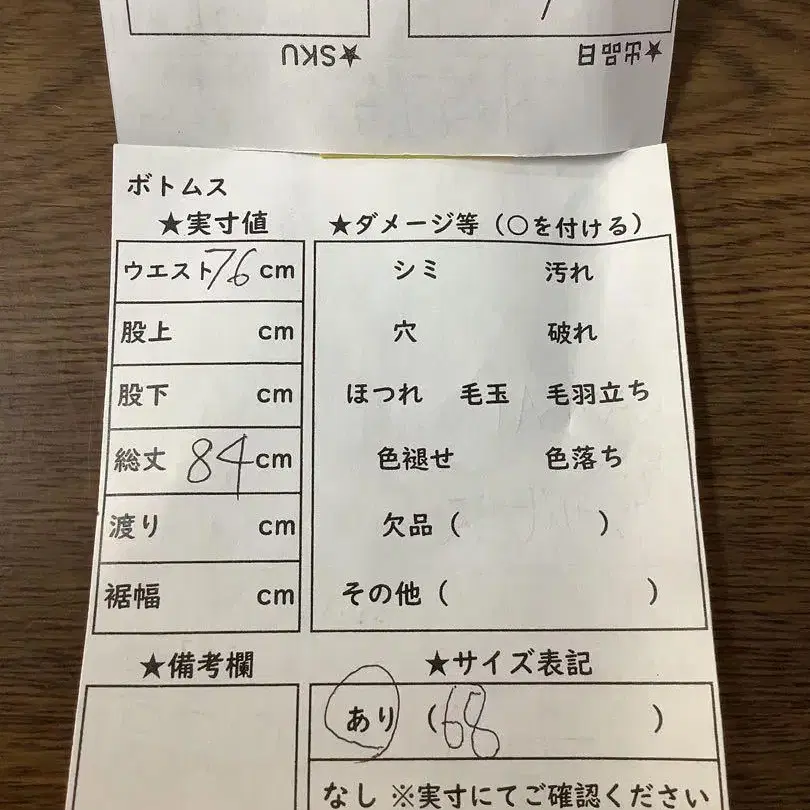 ★SKU
★出品日
ボトムス
★実寸値
ウエスト76cm
股上 cm
股下 cm
総丈 84cm
渡り cm
裾幅 cm
★ダメージ等（○を付ける）
シミ 汚れ
穴 破れ
ほつれ 毛玉 毛羽立ち
色褪せ 色落ち
欠品（ ）
その他（ ）
★備考欄
★サイズ表記
あり（68 ）
なし ※実寸にてご確認ください